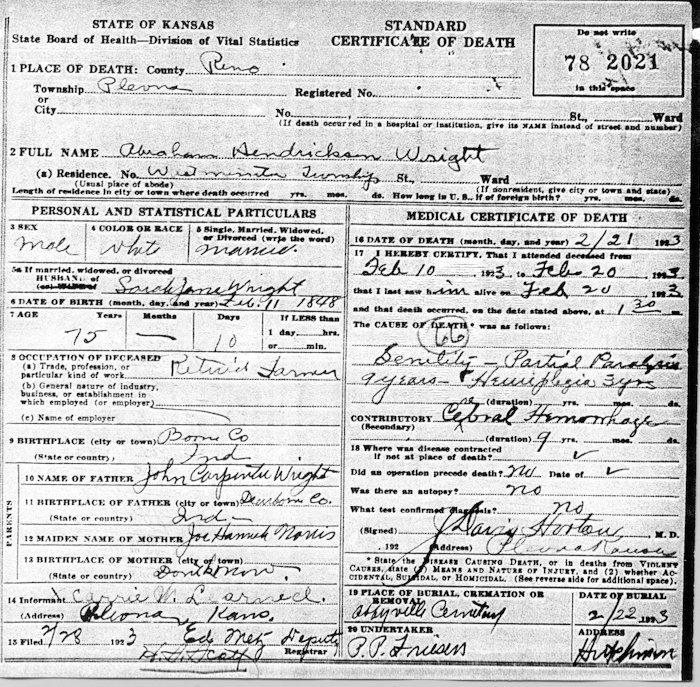 STATE OF KANSAS
State Board of Health—Division of Vital Statistics
STANDARD
CERTIFICATE OF DEATH
Do not write
78 2021
in this space
1 PLACE OF DEATH: County Reno
Township Plevna
or
City
Registered No.
No. St., Ward
(If death occurred in a hospital or institution, give its NAME instead of street and number)
2 FULL NAME Abraham Hendrickson Wright
(a) Residence. No. Westminster Township St., Ward
(Usual place of abode) (If nonresident, give city or town and state)
Length of residence in city or town where death occurred yrs. mos. ds. How long in U. S., if of foreign birth? yrs. mos. ds.
PERSONAL AND STATISTICAL PARTICULARS
3 SEX
Male
4 COLOR OR RACE
White
5 Single, Married, Widowed,
or Divorced (write the word)
Married
5a If married, widowed, or divorced
HUSBAND of
(or) WIFE of Sarah Jane Wright
6 DATE OF BIRTH (month, day, and year) Feb. 11 1848
7 AGE Years Months Days If LESS than
1 day, hrs.
or min.
75 — 10
8 OCCUPATION OF DECEASED
(a) Trade, profession, or
particular kind of work Retired Farmer
(b) General nature of industry,
business, or establishment in
which employed (or employer)
(c) Name of employer
9 BIRTHPLACE (city or town) Boone Co
(State or country) Ind
PARENTS
10 NAME OF FATHER John Carpenter Wright
11 BIRTHPLACE OF FATHER (city or town) Dearborn Co.
(State or country) Ind
12 MAIDEN NAME OF MOTHER Joe Hannah Norris
13 BIRTHPLACE OF MOTHER (city or town)
(State or country) Dont Know
14 Informant Carrie M. Learned.
(Address) Plevna Kans.
15 Filed 2/28 1923 Ed Metz Deputy
Registrar
H. W. Scott
MEDICAL CERTIFICATE OF DEATH
16 DATE OF DEATH (month, day, and year) 2/21 1923
17 I HEREBY CERTIFY, That I attended deceased from
Feb 10, 1923, to Feb 20, 1923
that I last saw him alive on Feb 20, 1923
and that death occurred, on the date stated above, at 1 30 m.
The CAUSE OF DEATH* was as follows:
66
Senility – Partial Paralysis
9 years – Hemiplegia 3 yrs
(duration) yrs. mos. ds.
CONTRIBUTORY Cebral Hemorrhage
(Secondary) (duration) 9 yrs. mos. ds.
18 Where was disease contracted
if not at place of death? ✓
Did an operation precede death? No Date of ✓
Was there an autopsy? No
What test confirmed diagnosis? No
(Signed) J Davis Horton, M. D.
, 192 (Address) Plevna Kansas
* State the DISEASE CAUSING DEATH, or in deaths from VIOLENT
CAUSES, state (1) MEANS AND NATURE OF INJURY, and (2) whether AC-
CIDENTAL, SUICIDAL, or HOMICIDAL. (See reverse side for additional space.)
19 PLACE OF BURIAL, CREMATION OR
REMOVAL
Abbyville Cemetery
DATE OF BURIAL
2/22 1923
20 UNDERTAKER
P. P. Friesen
ADDRESS
Hutchinson